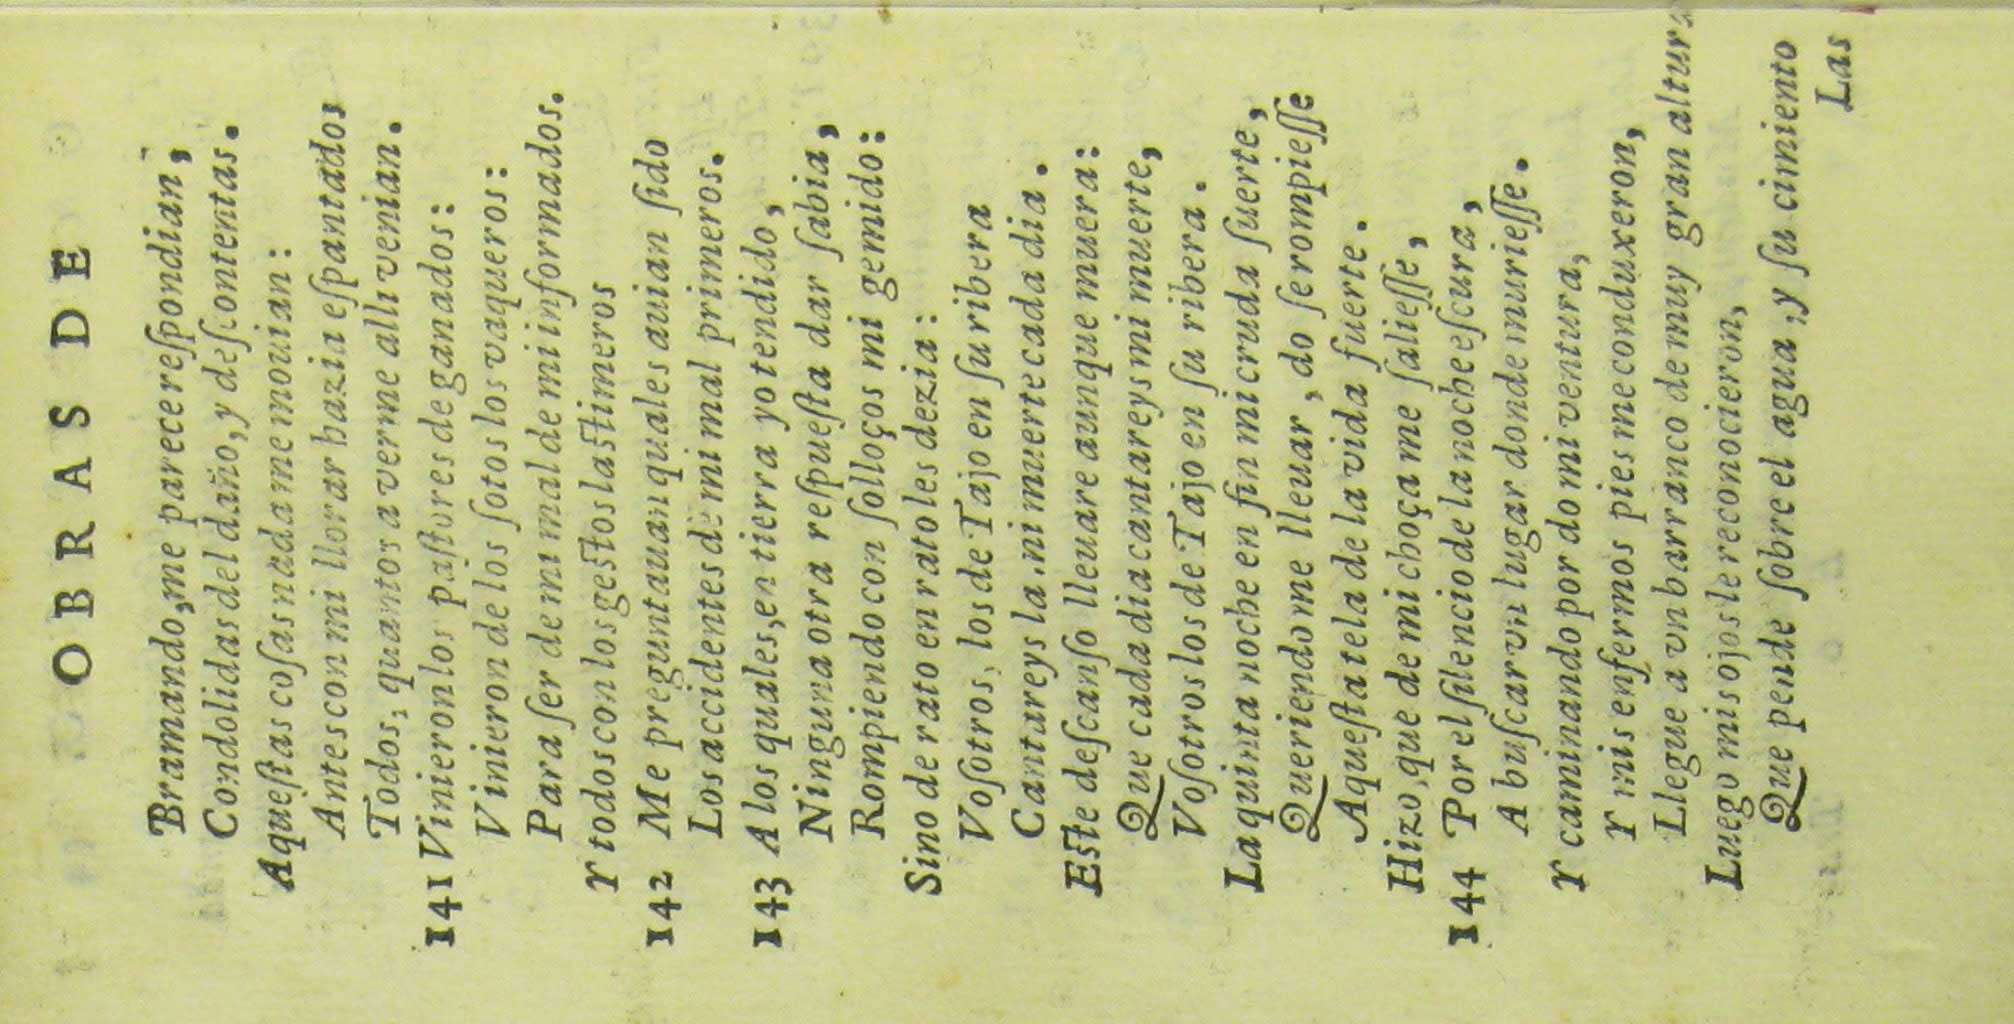 OBRAS DE
Bramando, me parece reſpondian,
Condolidas del daño, y deſcontentas.
Aqueſtas coſas nada me mouian:
Antes con mi llorar hazia eſpantados
Todos, quantos a verme alli venian.
141 Vinieron los paſtores de ganados:
Vinieron de los ſotos los vaqueros:
Para ſer de mi mal de mi informados.
Y todos con los geſtos laſtimeros
142 Me preguntauan quales auian ſido
Los accidentes de mi mal primeros.
143 A los quales, en tierra yo tendido,
Ninguna otra reſpueſta dar ſabia,
Rompiendo con ſolloços mi gemido:
Sino de rato en rato les dezia:
Voſotros, los de Tajo en ſu ribera
Cantareys la . ni muerte cada dia.
Eſte deſcanſo lleuare aunque muera:
Que cada dia cantareys mi muerte,
Voſotros los de Tajo en ſu ribera.
La quinta noche en fin mi cruda ſuerte,
Queriendo me lleuar, do ſe rompieſſe
Aqueſta tela de la vida fuerte.
Hizo, que de mi choça me ſalieſſe,
144 Por el ſilencio de la noche eſcura,
A buſcar vn lugar donde murieſſe.
Y caminando por do mi ventura,
Y mis enfermos pies me conduxeron,
Llegue a vn barranco de muy gran altura
Luego mis ojos le reconocieron,
Que pende ſobre el agua, y ſu cimiento
Las